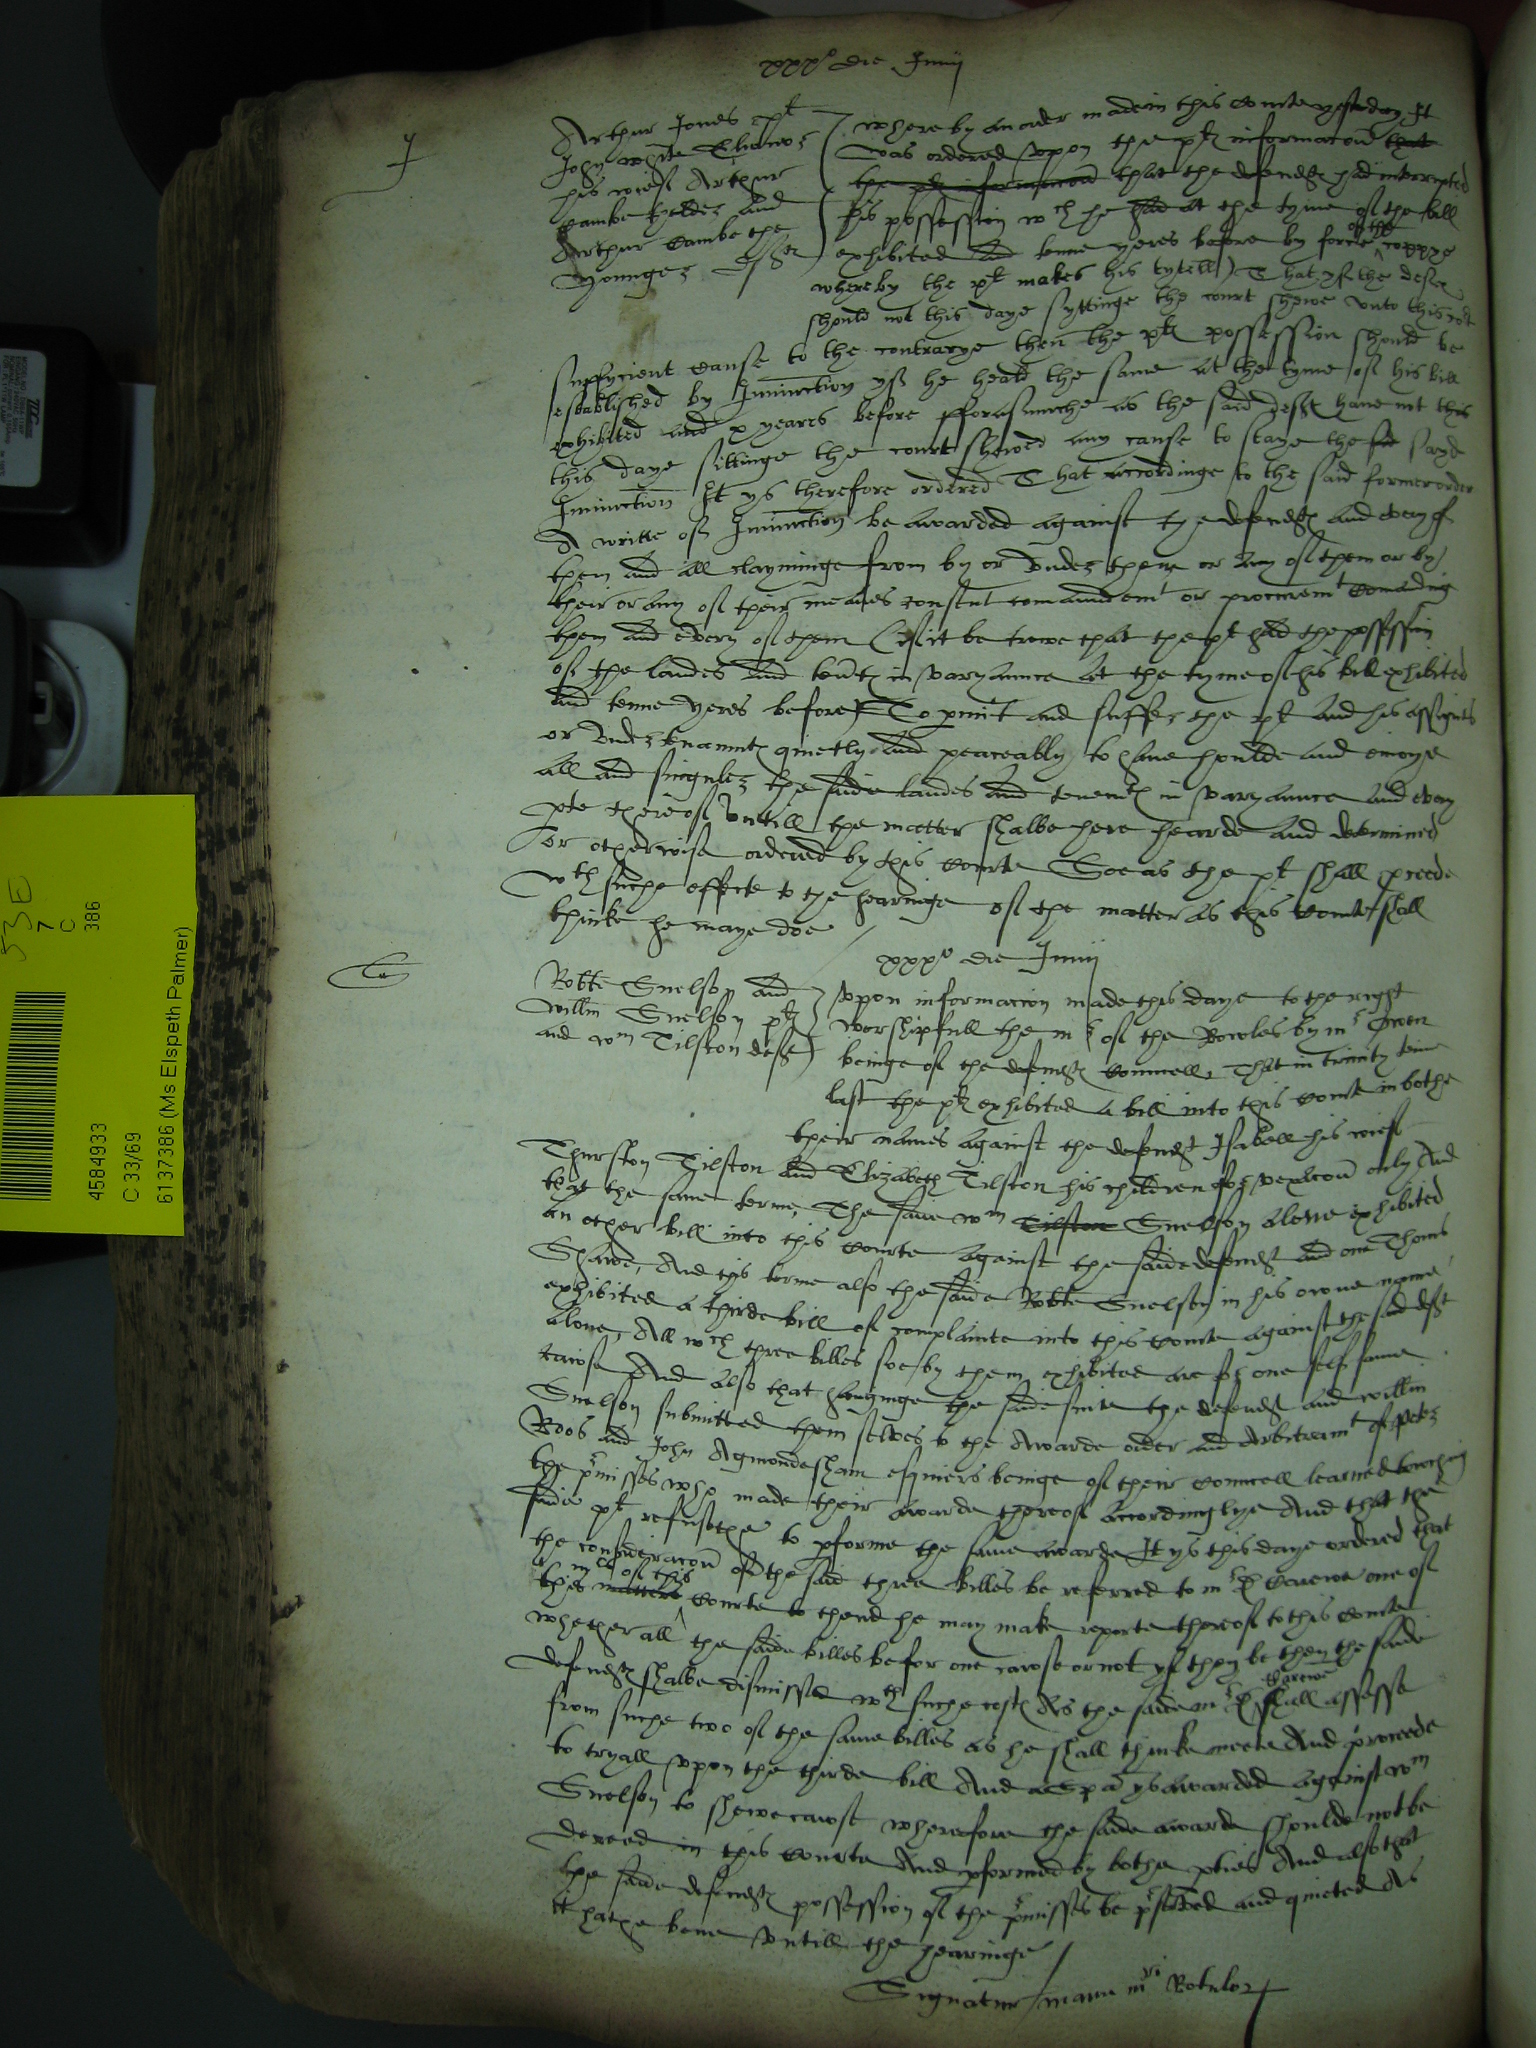 xxx° die Junij
J
Arthur Jones plt
John white Elianor
his wief Arthur
Cambe thelder and
Arthur Cambe the
Younger deftes
whereby an order made in this Courte yesterday It
was ordered upon the pltes informacon that
the pltes informacon that the defendtes had interrupted
his possession wch he had at the tyme of the bill
exhibited and tenne yeres before by force of the coppye
whereby the plt makes his tytell) That yf the defen
should not this daye syttinge the court shewe unto this cort
suffycient cause to the contrarye then the pltes possession should be
established by Iniunction yf he heald the same at the tyme of his bill
exhibited and x yeares before fforasmuche as the said deftes have not this
this daye sittinge the court shewed any cause to staye the sd sayd
Iniunction It ys therefore ordered That accordinge to the said former order
A writte of Iniunction be awarded against the defendtes and every of
them and all clayminge from by or under them or any of them or by
their or any of their meanes consent comaundemt or procuremt Comanding
them and every of them (If it be trewe that the plt had the possession
of the landes and tentes in varyaunce at the tyme of his bill exhibited
and tenne yeres before) To pmitt and suffer the plt and his assignes
or under tenauntes quietly and peaceably to have houlde and enioye
all and singuler the saide landes and tenemtes in varyaunce and every
pte thereof untill the matter shalbe here hearde and determined
or otherwise ordered by this Courte Soe as the plt shall proceede
wth suche effecte to the hearinge of the matter as this Courte shall
thinke he maye doe
xxx° die Junij
Robte Snelson and
Willm Snelson pltes
and Wm Tilston deft
Upon informacion made this daye to the right
worshipfull the mr of the Rowles by mr Owen
beinge of the defendtes Councell, That in Trinity terme
last the pltes exhibited a bill into this Courte in bothe
their names against the defendt Isabell his wief
Thurston Tilston and Elizabeth Tilston his children for vexacon only And
that the same terme, The same Wm Tilston Snelson alone exhibited
an other bill into this Courte against the saide defendt and one Thoms
Shawe, And this terme also the saide Robte Snelson in his owne name
exhibited a thirde bill of complainte into this Courte against the said deft
alone, All wch three billes soe by them exhibited are for one self same
cawse And also that hanginge the saide suite the defendt and Willm
Snelson submitted them selves to the Awarde order and Arbitramt of Peter
Roos and John Agmondesham esquiers beinge of their Councell learned towching
the pmisses who made their awarde thereof accordinglye And that the
saide plt refusethe to pforme the same awarde It ys this daye ordered that
the consideracon of the said three billes be referred to mr D Carewe one of
the mrs of this
thies matters Courte to thend he may make reporte thereof to this Courte
whether all the saide billes be for one cawse or not yf they be then the saide
defendtes shalbe dismissed wth suche costes As the saide mr D Carewe shall assesse
from suche two of the same billes as he shall thinke meete And proceede
to tryall upon the thirde bill And a Spa ys awarded against Wm
Snelson to shewe cawse wherefore the saide awarde shoulde not be
decreed in this Courte And pformed by bothe pties And also that
the saide defendtes possession of the pmisses be pserved and quieted As
it hathe bene untill the hearinge
Signatur manu mri Rotulor
53E
7
C
386
4584933
C 33/69
6137386 (Ms Elspeth Palmer)